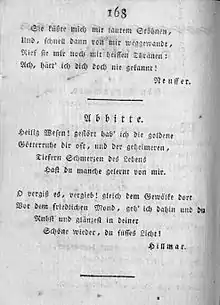 168
Sie küßte mich mit lautem Stöhnen,
Und, schnell dann von mir weggewandt,
Rief sie mir noch mit heissen Thränen:
Ach, hätt' ich dich doch nie gekannt!
Neuffer.
Abbitte.
Heilig Wesen! gestört hab' ich die goldene
Götterruhe dir oft, und der geheimeren,
Tiefern Schmerzen des Lebens
Hast du manche gelernt von mir.
O vergiß es, vergieb! gleich dem Gewölke dort
Vor dem friedlichen Mond, geh' ich dahin und du
Ruhst und glänzest in deiner
Schöne wieder, du süsses Licht!
Hillmar.